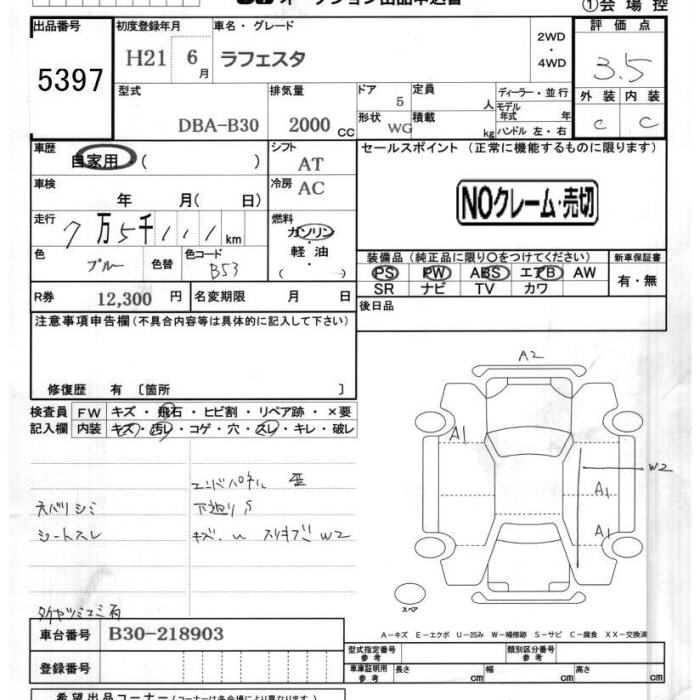 オークション出品申込書
①会場控
出品番号
5397
初度登録年月
H21 6月
車名・グレード
ラフェスタ
2WD
・
4WD
評価点
3.5
型式
DBA-B30
排気量
2000 CC
ドア
5
定員
人
形状
WG
積載
kg
ディーラー・並行
モデル年式 年
ハンドル 左・右
外装 内装
C C
車歴
自家用 ( )
シフト
AT
セールスポイント (正常に機能するものに限ります)
車検
年 月( 日)
冷房
AC
NOクレーム・売切
走行
7万5千111km
燃料
ガソリン
・
軽油
( )
色
ブルー
色替
色コード
B53
装備品 (純正品に限り〇をつけてください)
PS PW ABS エアB AW
SR ナビ TV カワ
新車保証書
有・無
R券
12,300 円
名変期限 月 日
後日品
注意事項申告欄 (不具合内容等は具体的に記入して下さい)
修復歴 有 〔箇所 〕
検査員記入欄
FW キズ・飛石・ヒビ割・リペア跡・×要
内装 キズ・汚レ・コゲ・穴・スレ・キレ・破レ
A2
A1
W2
A1
A1
エンドパネル 歪
天バリシミ
下廻りS
シートスレ
キズ.u スリキズ W2
スペア
A-キズ E-エクボ U-凹み W-補修跡 S-サビ C-腐食 XX-交換済
車台番号
B30-218903
登録番号
型式指定番号
参考
類別区分番号
参考
車庫証明用
参考
長さ cm 幅 cm 高さ cm
希望出品コーナー (コーナーは各会場により異なります。)